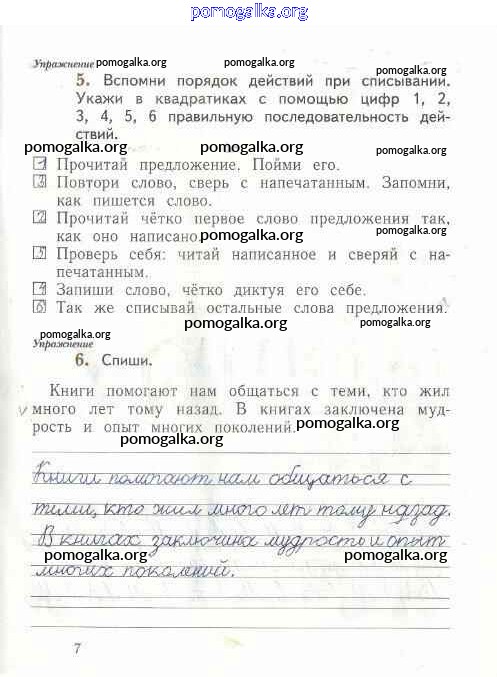 pomogalka.org
Упражнение pomogalka.org pomogalka.org
5. Вспомни порядок действий при списывании.
Укажи в квадратиках с помощью цифр 1, 2,
3, 4, 5, 6 правильную последовательность дей-
ствий.
pomogalka.org pomogalka.org pomogalka.org
1 Прочитай предложение. Пойми его.
3 Повтори слово, сверь с напечатанным. Запомни,
как пишется слово.
2 Прочитай чётко первое слово предложения так,
как оно написано. pomogalka.org pomogalka.org
5 Проверь себя: читай написанное и сверяй с на-
печатанным.
4 Запиши слово, чётко диктуя его себе.
6 Так же списывай остальные слова предложения.
pomogalka.org pomogalka.org pomogalka.org
Упражнение
6. Спиши.
Книги помогают нам общаться с теми, кто жил
много лет тому назад. В книгах заключена муд-
рость и опыт многих поколений.
pomogalka.org pomogalka.org
Книги помогают нам общаться с
pomogalka.org pomogalka.org
теми, кто жил много лет тому назад.
В книгах заключина мудрость и опыт
pomogalka.org pomogalka.org
многих поколений.
7